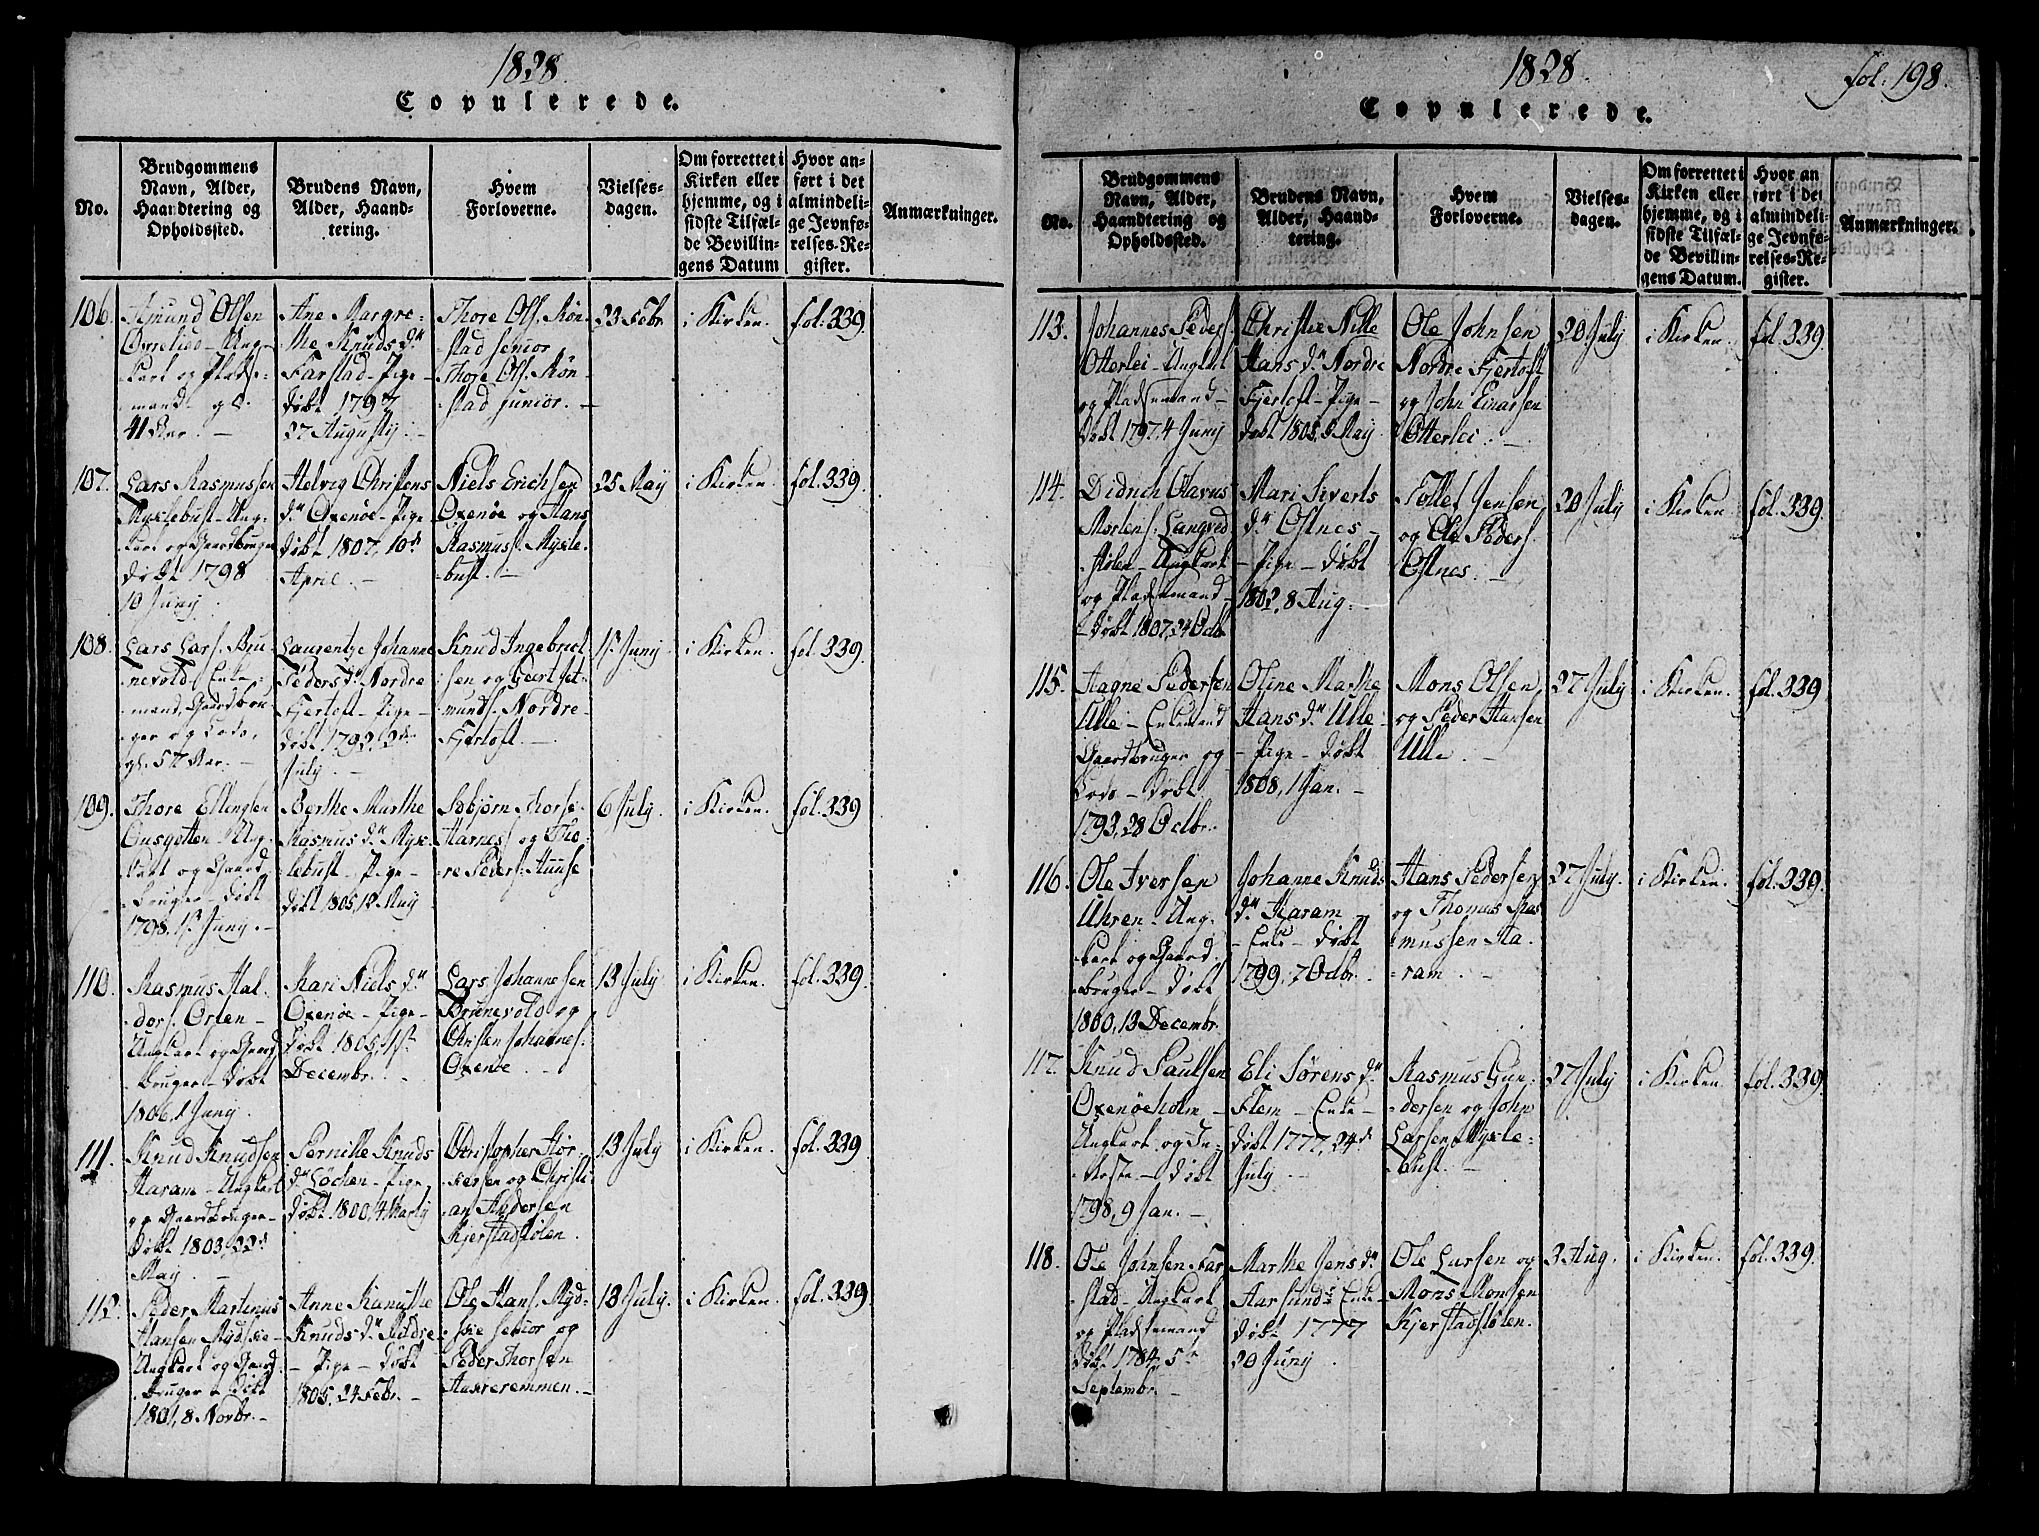 1828.
Copulerede.
No.
Brudgommens
Navn, Alder,
Haandtering og
Opholdssted.
Brudens Navn,
Alder, Haand-
tering.
Hvem
Forloverne.
Vielses-
dagen.
Om forrettet i
Kirken eller
hjemme, og i
sidste Tilfæl-
de Bevillin-
gens Datum
Hvor an-
ført i det
almindeli-
ge Jevnfø-
relses-Re-
gister.
Anmærkninger.
106.
Amund Olsen
Ovrelied - Ung-
karl og Pladse-
mand - gl.
41 Aar. -
Ane Margre-
the Knuds D.
Farstad - Pige -
døbt 1797
27 Augustij. -
Thore Ols. Røn-
stad senior,
Thore Ols. Røn-
stad junior. -
23 Febr
i Kirken.
fol: 339.
107.
Lars Rasmussen
Myxlebust - Ung-
karl og Gaardbruger
døbt 1798
10 Junij.
Helvig Christens
D. Oxenöe - Pige
døbt 1807, 10de
April. -
Niels Erichsen
Oxenöe og Hans
Rasmuss. Myxle-
bust. -
25 Maij
i Kirken.
fol. 339.
108.
Lars Lars. Bru-
nevold - Enke-
mand, Gaardbru-
ger og Lods,
gl. 57 Aar. -
Laurentze Johanne
Peders D. Nordre
Fjertoft - Pige -
døbt 1792, 2de
July. -
Knud Ingebrict-
sen og Geert Jet-
munds. Nordre-
Fjertoft. -
15 Junij
i Kirken.
fol. 339.
109.
Thore Ellingsen
Gusgotten - Ung-
karl og Gaard-
bruger - døbt
1798, 15 Junij. -
Berthe Marthe
Rasmus D. Myx-
lebust - Pige -
døbt 1805, 12 Maij
Asbjørn Thorse-
Harnes og Tho-
re Peders. Huuse
6 July.
i Kirken.
fol. 339
110.
Rasmus Hal-
dors. Orten -
Ungkarl og Gaard-
bruger - døbt
1806, 1 Junij.
Kari Niels D.
Oxenöe - Pige -
døbt 1805, 1ste
Decembr. -
Lars Johannesen
Brunevold og
Christen Johannes.
Oxenöe. -
13 July
i Kirken.
fol. 339.
111.
Knud Knudsen
Haram - Ungkarl
og Gaardbruger -
døbt 1803, 22de
May. -
Pernille Knuds
D. Löchen - Pige
døbt 1800, 14 Martij
Christopher Stör-
kersen og Christi-
an Andersen
Kjerstadstølen.
13 July
i Kirken.
fol. 339.
112.
Peder Martinus
Hansen Mydskie -
Ungkarl og Gaard-
bruger - døbt
1801, 8 Novbr. -
Anne Kanutte
Knuds D. Medre -
- Pige - døbt
1805, 24 Febr. -
Ole Hans. Myd-
skie senior og
Peder Thorsen
Haxreremmen. -
13 July.
i Kirken.
fol. 339.
1828.
fol: 198.
Copulerede.
No.
Brudgommens
Navn, Alder,
Haandtering og
Opholdssted.
Brudens Navn,
Alder, Haand-
tering.
Hvem
Forloverne.
Vielses-
dagen.
Om forrettet i
Kirken eller
hjemme, og i
sidste Tilfæl-
de Bevillin-
gens Datum.
Hvor an-
ført i det
almindeli-
ge Jevnfø-
relses-Re-
gister.
Anmærkninger.
113.
Johannes Peders
Otterlei - Ungkarl
og Pladsemand -
døbt 1797, 4 Junij
Christie Nille
Hans D. Nordre
Fjertoft - Pige -
døbt 1805, 5 Maij
Ole Johnsen
Nordre Fjertoft
og John Einarsen
Otterlei. -
20 July
i Kirken.
fol. 339.
114.
Didrich Olavus
Mortens. Langved
stølen - Ungkarl
og Pladsemand -
- døbt 1807, 24 Octb.
Mari Siverts
D. Ostnes -
- Pige - døbt
1802, 8 Aug: -
Tollef Jensen
og Ole Peders.
Ostnes. -
20 July
i Kirken.
fol. 339.
115.
Aagne Pedersen
Ulle - Enkemand
Gaardbruger og
Lods - døbt
1793, 28 Octbr.
Oline Marthe
Hans D. Ulle -
- Pige - døbt
1808, 1 Jan. -
Mons Olsen
og Peder Hansen
Ulle. -
27 July
i Kirken.
fol. 339
116.
Ole Iversen
Uhren - Ung-
karl og Gaard-
bruger - døbt
1800, 13 Decembr.
Johanne Knuds
D. Haram
- Enke - døbt
1799, 7 Octbr. -
Hans Pedersen
og Thomas Ras
mussen Ha-
ram. -
27 July.
i Kirken.
fol. 339.
117.
Knud Paulsen
Oxenöeholm -
Ungkarl og In-
derste - døbt
1798, 9 Jan. -
Eli Sørens D.
Flem - Enke -
døbt 1777, 24de
July. -
Rasmus Gun-
dersen og John
Larsen Myxle-
bust. -
27 July
i Kirken.
fol. 339.
118.
Ole Johnsen Far
stad - Ungkarl
og Pladsemand
døbt 1784, 5te
Septembr. -
Marthe Jens D.
Aarsund - Enke -
døbt 1777
20 Junij.
Ole Larsen og
Mons Monsen
Kjerstadstølen.
3 Aug.
i Kirken.
fol. 339.